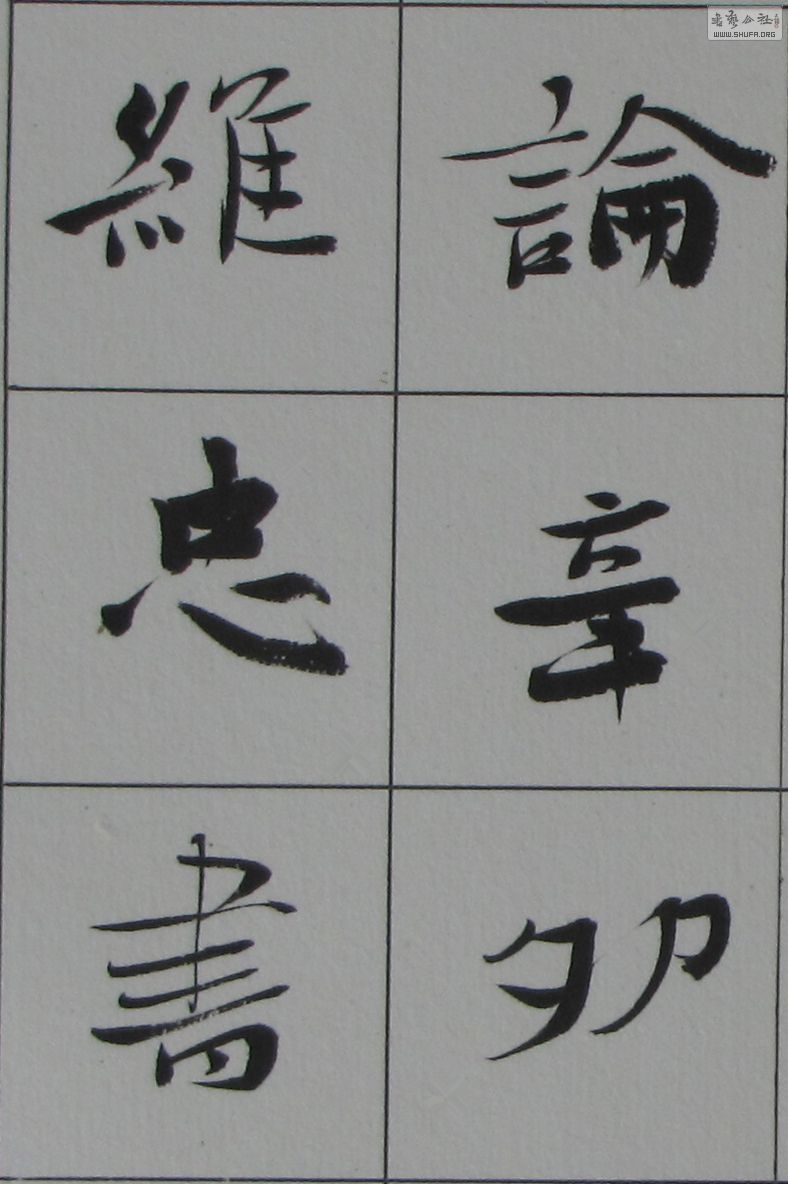 論辛卯
維忠書
書藝公社
WWW.SHUFA.ORG